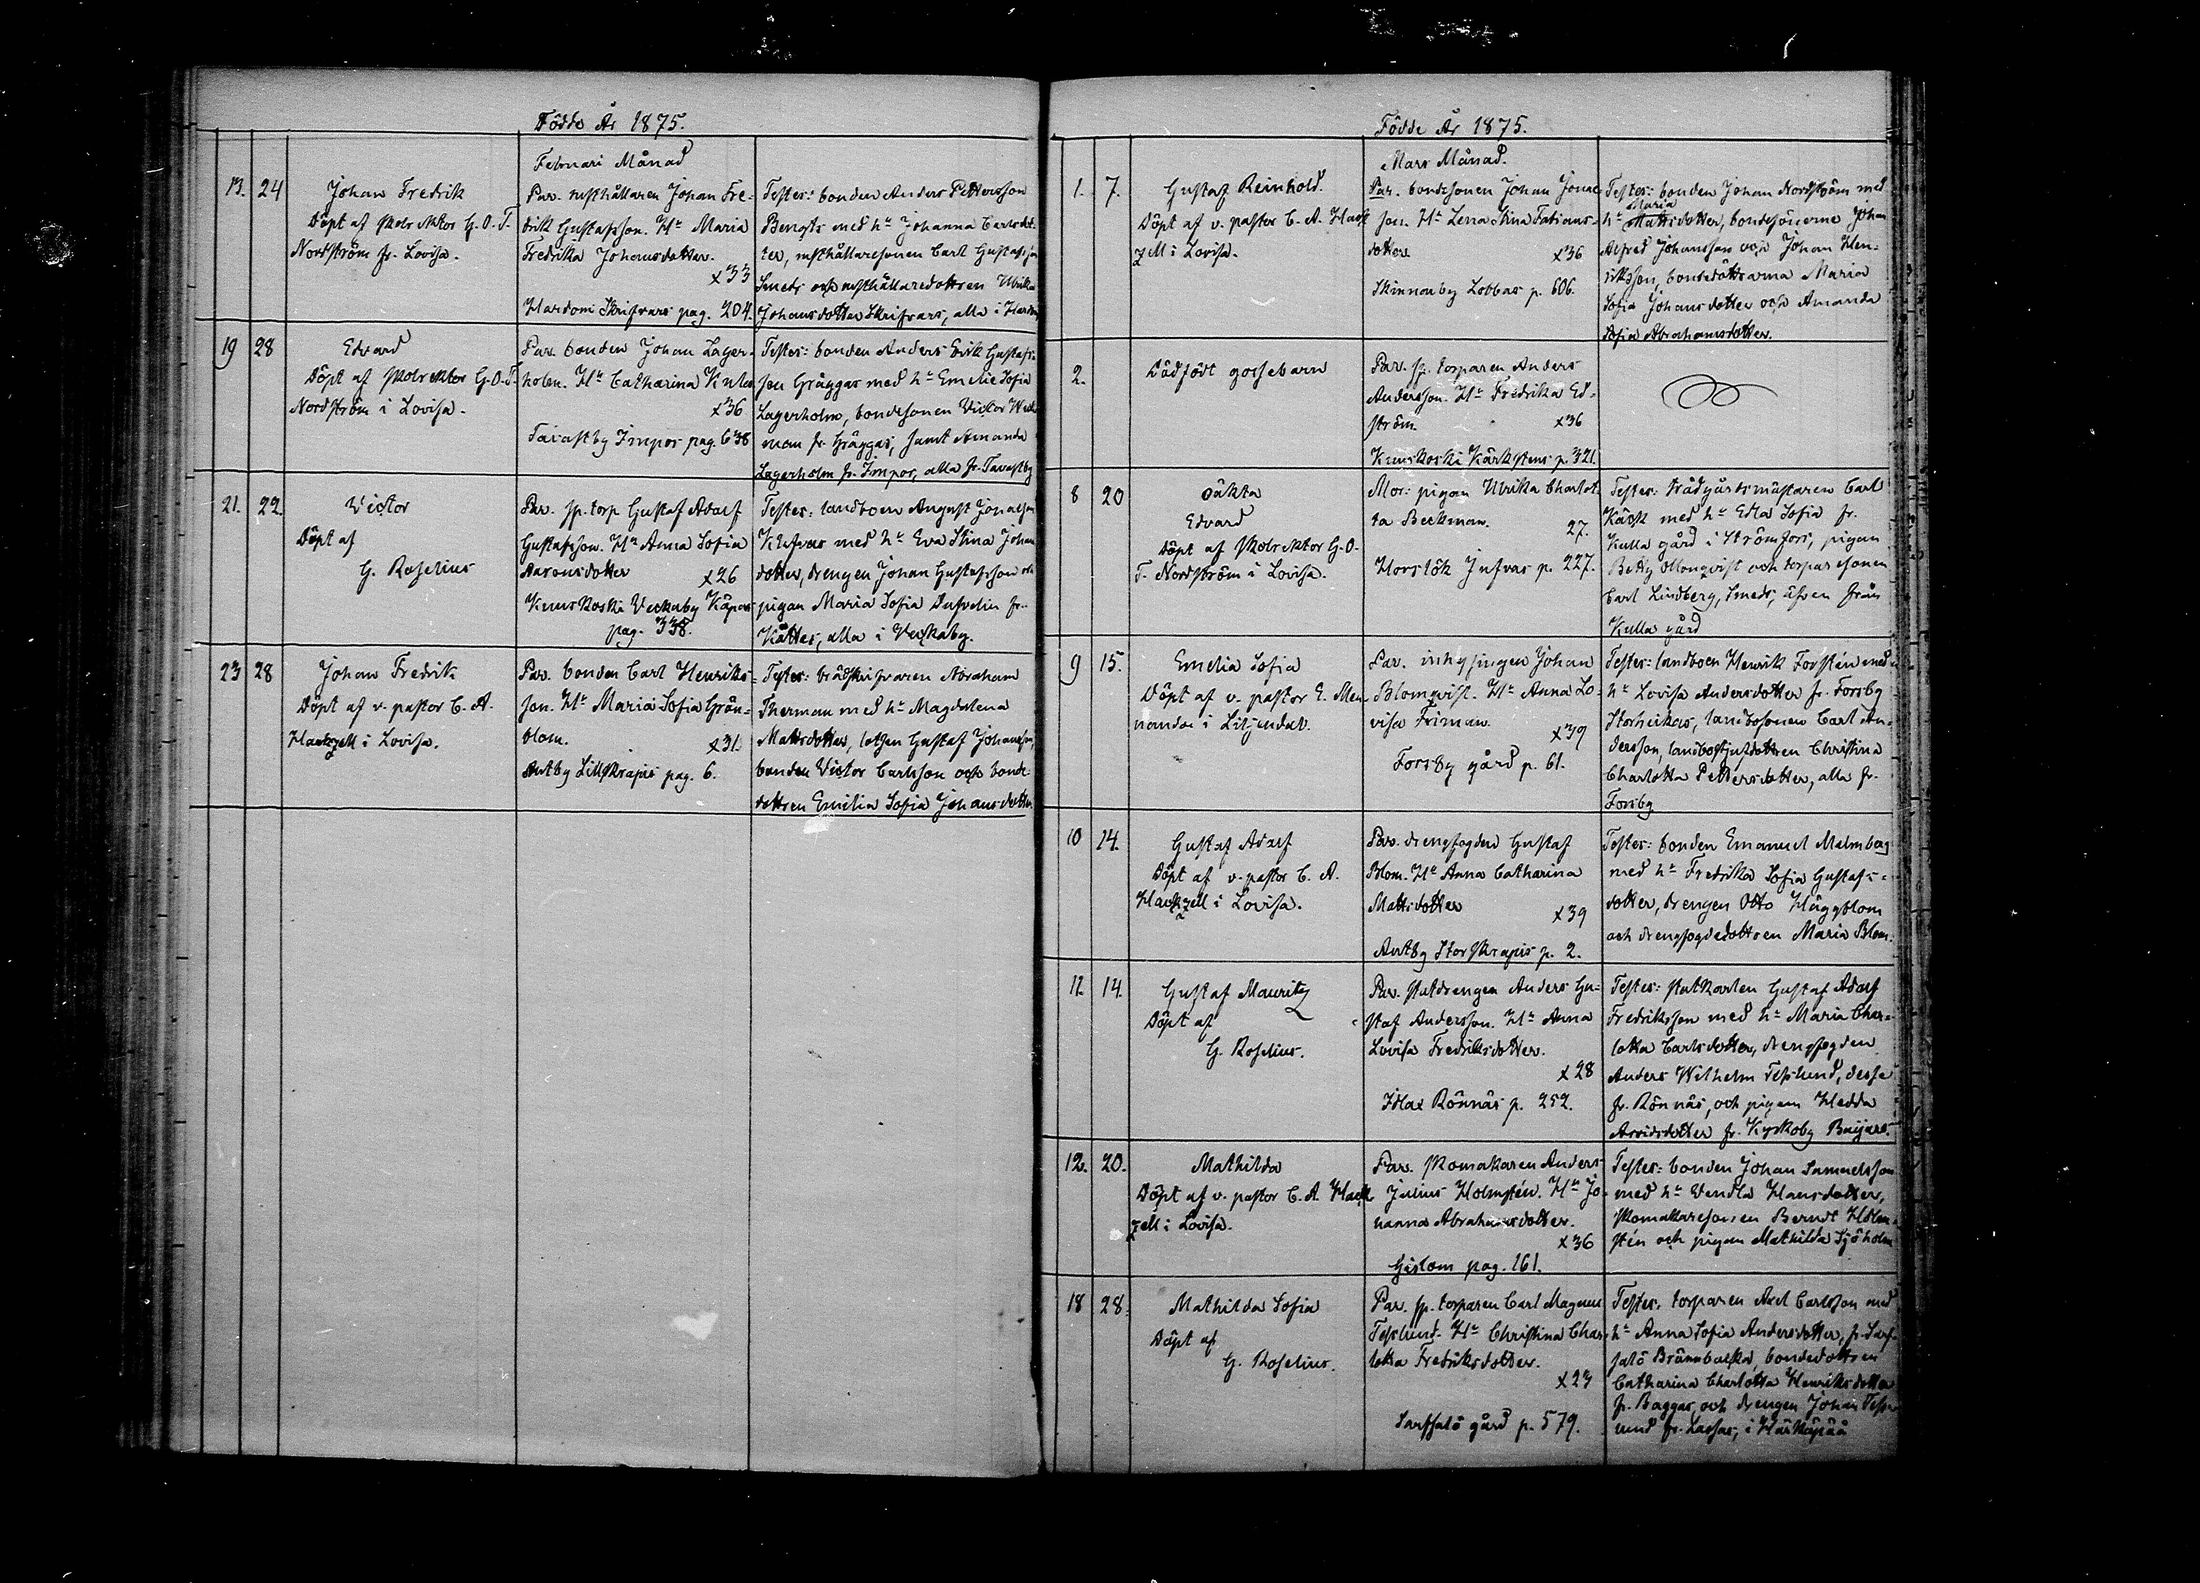 Födde År 1875.
Februari Månad
13. 24
Johan Fredrik
Döpt af Skolrektor G. O. T.
Nordström fr. Lovisa.
Par. rusthållaren Johan Fre-
drik Gustafsson. Hu Maria
Fredrika Johansdotter.
x33
Hardom Skrifvars pag. 204.
Testes: bonden Anders Pettersson
Bengts med hu Johanna Carlsdot-
ter, rusthållaresonen Carl Gustafsson
Smeds och rusthållaredottren Ulrika
Johansdotter Skrifvars, alla i Hardom
19 28
Edvard
Döpt af Skolrektor G. O. T.
Nordström i Lovisa.
Par. bonden Johan Lager-
holm. Hu Catharina
x36
Tavastby Impos pag. 638
Testes: bonden Anders Erik Gustafs-
son Gräggas med hu Emelie Sofia
Lagerholm, bondesonen Victor
man fr. Gräggas, samt Amanda
Lagerholm fr. Impos, alla fr. Tavastby
21. 22.
Victor
Döpt af
G. Roselius
Par. sp. torp Gustaf Adolf
Gustafsson. Hu Anna Sofia
Aaronsdotter
x26
Kuuskoski Veckaby Käpas
pag. 338.
Testes: landboen August Jonasson
med hu Eva Stina Johans
dotter, drengen Johan Gustafsson och
pigan Maria Sofia fr.
Kättes, alla i Veckaby.
23 28
Johan Fredrik
Döpt af v. pastor C. A.
Hackzell i Lovisa.
Par. bonden Carl Henriks-
son. Hu Maria Sofia Grön-
blom.
x31.
Antby Lillskrapis pag. 6.
Testes: Abraham
Therman med hu Magdalena
Mattsdotter, lotsen Gustaf Johansson,
bonden Victor Carlsson och bonde
dottren Emilia Sofia Johansdotter.
Födde År 1875.
Mars Månad.
1. 7.
Gustaf Reinhold.
Döpt af v. pastor C. A. Hack
zell i Lovisa.
Par. bondesonen Johan Jonas-
son. Hu Lena Stina Fabians-
dotter
x36
Skinnarby Lobbas p. 606.
Testes: bonden Johan Nordström med
Maria
hu Mattsdotter, bondesönerne Johan
Alfred Johansson och Johan Hen-
riksson, bondedöttrarna Maria
Sofia Johansdotter och Amanda
Sofia Abrahamsdotter.
2.
Dödfödt gossebarn
Par. sp. torparen Anders
Andersson. Hu Fredrika Ed-
ström
x36
Kuuskoski Kärkstens p. 321.
8 20
oäkta
Edvard
Döpt af Skolrektor G. O.
T. Nordström i Lovisa.
Mor: pigan Ulrika Charlot-
ta Beckman.
27.
Horslök p. 227.
Testes: trädgårdsmästaren Carl
Käck med hu Edla Sofia fr.
Kulla gård i Strömfors, pigan
Betty Almqvist och torparesonen
Carl Lindberg, Smeds, äfven från
Kulla gård
9 15.
Emelia Sofia
Döpt af v. pastor E. Men
nander i Liljendal.
Par. inhysingen Johan
Blomqvist. Hu Anna Lo-
visa Friman
x39
Forsby gård p. 61.
Testes: landboen Henrik Forstén med
hu Lovisa Andersdotter fr. Forsby
Storheikas, landbosonen Carl An-
dersson, Christina
Charlotta Pettersdotter, alla fr.
Forsby
10 14.
Gustaf Adolf
Döpt af v. pastor C. A.
Hackzell i Lovisa.
Par. drengfogden Gustaf
Blom. Hu Anna Catharina
Mattsdotter
x39
Antby Storskrapis p. 2.
Testes: bonden Emanuel Malmberg
med hu Fredrika Sofia Gustafs-
dotter, drengen Otto Häggblom
och drengfogdedottren Maria Blom.
11. 14.
Gustaf Mauritz
Döpt af
G. Roselius.
Par. statdrengen Anders Gu-
staf Andersson. Hu Anna
Lovisa Fredriksdotter.
x28
Rönnäs p. 252.
Testes: statkarlen Gustaf Adolf
Fredriksson med hu Maria Char-
lotta Carlsdotter, drengfogden
Anders Wilhelm Tesslund, dessa
fr. Rönnäs, och pigan Hedda
Arvidsdotter fr. Kyskoby Baijars.
12. 20.
Mathilda
Döpt af v. pastor C. A Hack
zell i Lovisa.
Par. Skomakaren Anders
Julius Holmstén. Hu Jo-
hanna Abrahamsdotter.
x36
Gislom pag. 161.
Testes: bonden Johan Samuelsson
med hu Vendla Hansdotter,
Skomakaresonen Berndt Holm-
stén och pigan Mathilda Sjöholm
18 28.
Mathilda Sofia
Döpt af
G. Roselius.
Par. sp. torparen Carl Magnus
Tesslund. Hu Christina Char-
lotta Fredriksdotter.
x23
Sarfsalö gård p. 579.
Testes. torparen Axel Carlsson med
hu Anna Sofia Andersdotter, fr. Sarf-
salö Brännbacka, bondedottren
Catharina Charlotta Henriksdotter
fr. Baggas, och drengen Johan Tess-
lund fr. Lassas, i Härkäpää